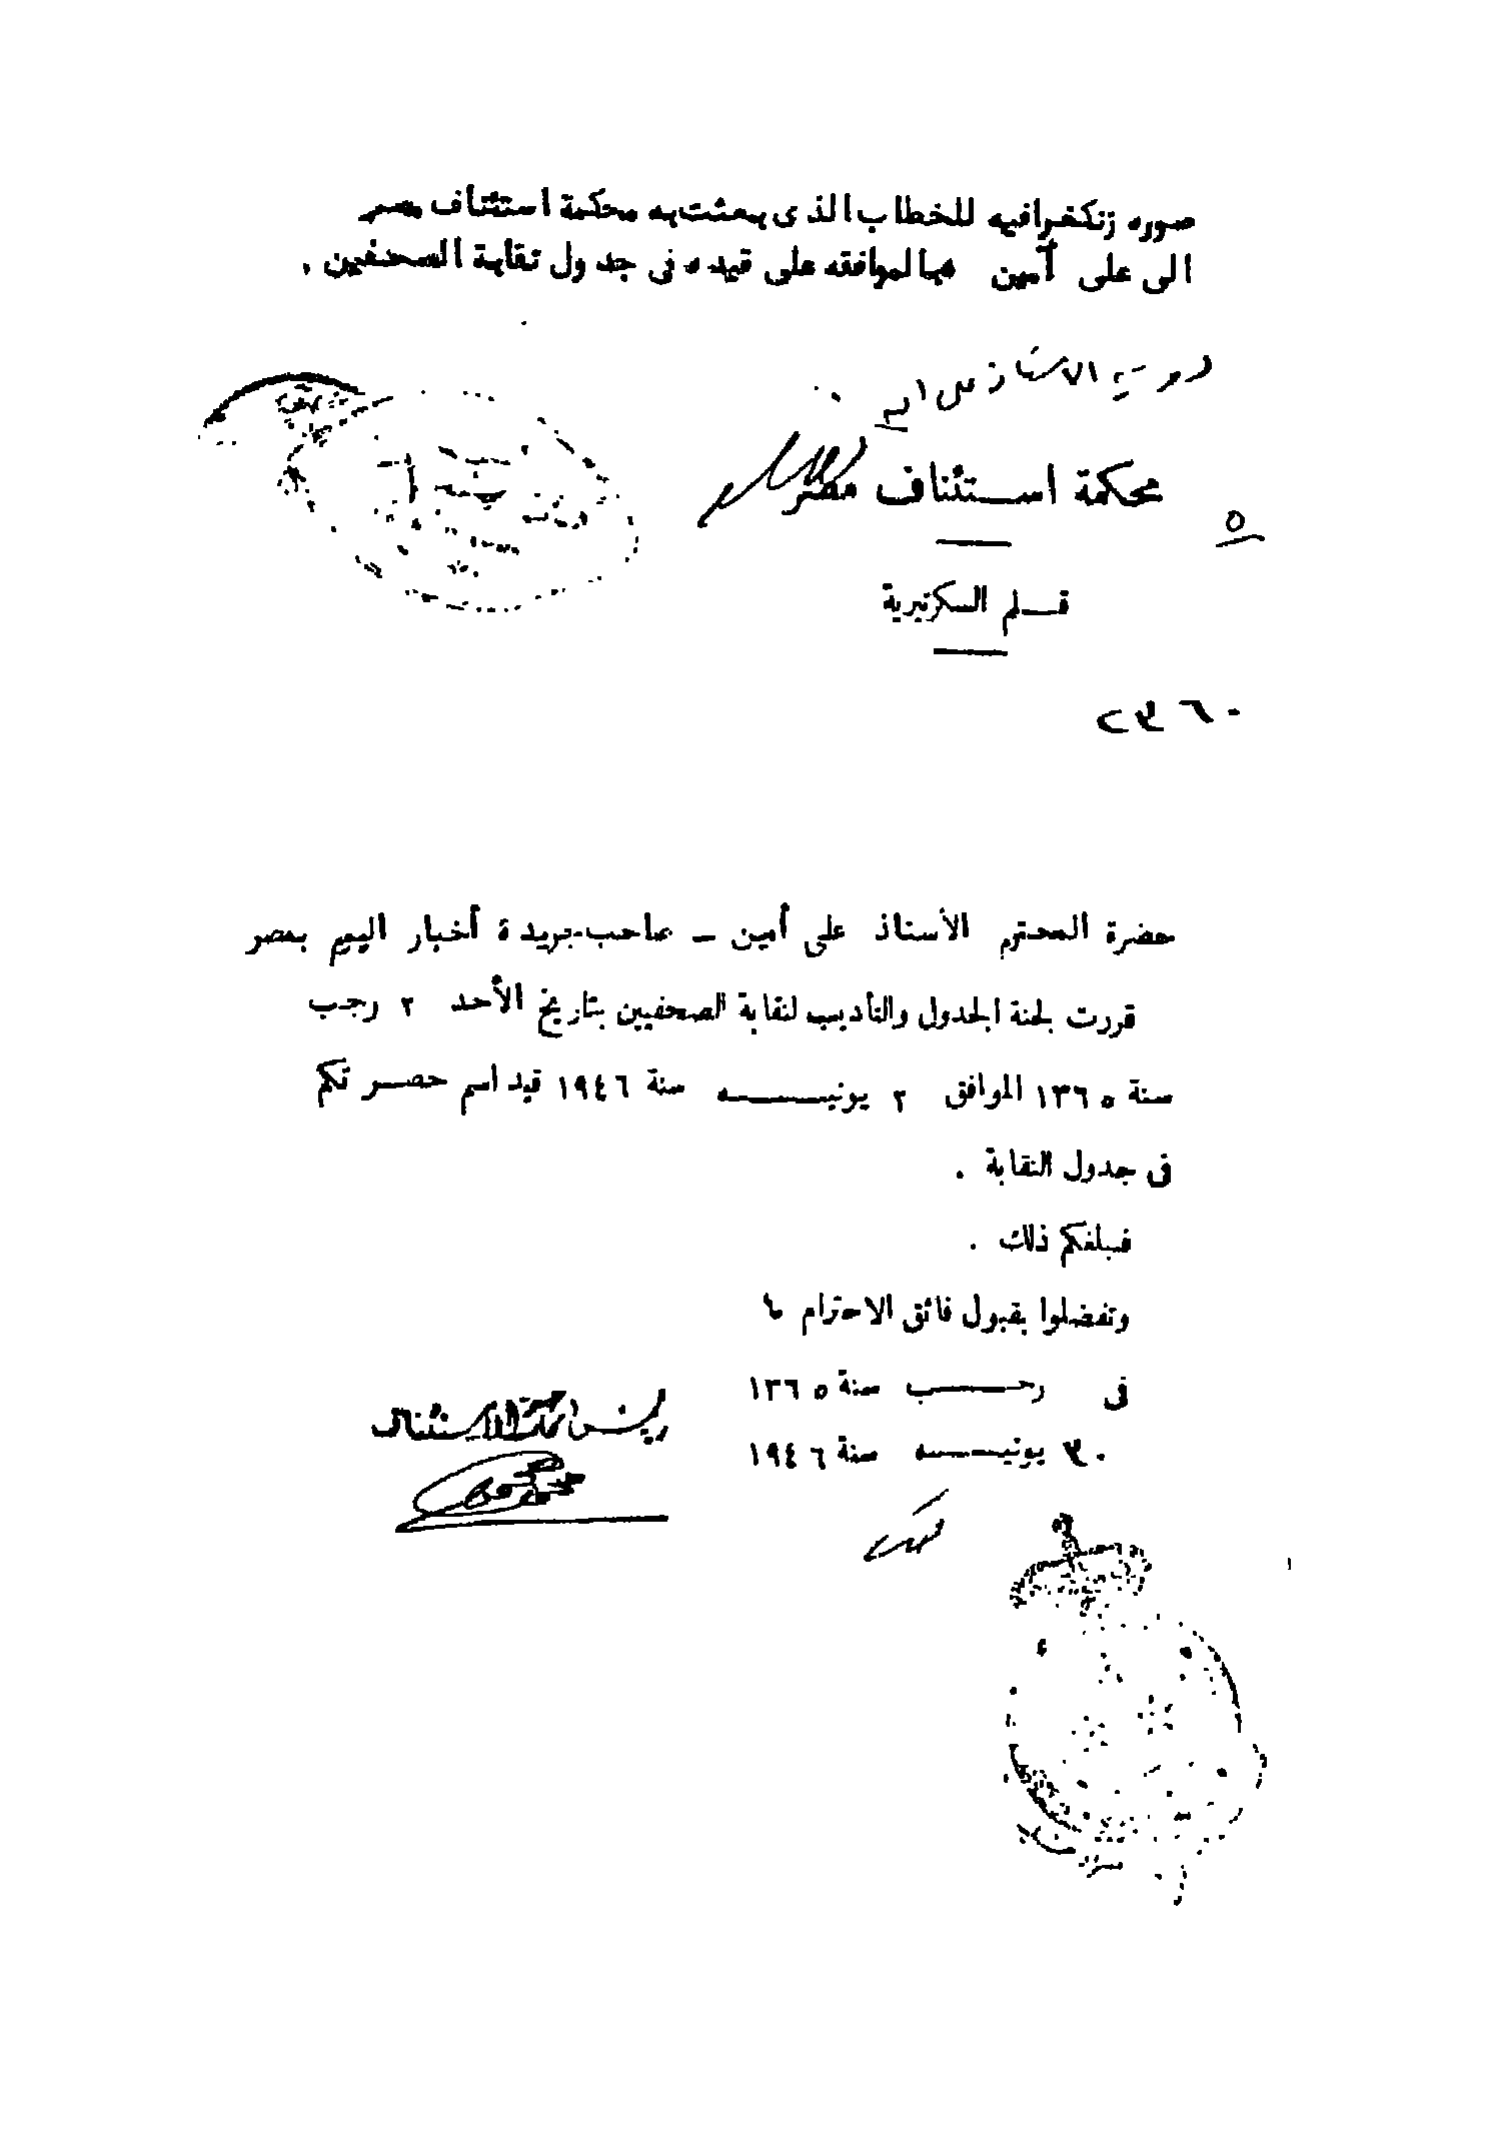 صوره زنكغرافيه للخطاب الذى بعثت به محكمة استئناف مصر
الى على أمين بالموافقه على قيده فى جدول نقابة الصحفيين .
دوسيه الاستاذ على امين
محكمة استئناف مصر
٥
قلم السكرتيرية
٢٣٦٠
حضرة المحترم الأستاذ على أمين – صاحب جريدة أخبار اليوم بمصر
قررت لجنة الجدول والتأديب لنقابة الصحفيين بتاريخ الأحد ٢ رجب
سنة ١٣٦٥ الموافق ٢ يونيــــه سنة ١٩٤٦ قيد اسم حضرتكم
فى جدول النقابة .
فنبلغكم ذلك .
وتفضلوا بقبول فائق الاحترام
فى رجــــب سنة ١٣٦٥
٣٠ يونيــــه سنة ١٩٤٦
رئيس محكمة الاستئناف